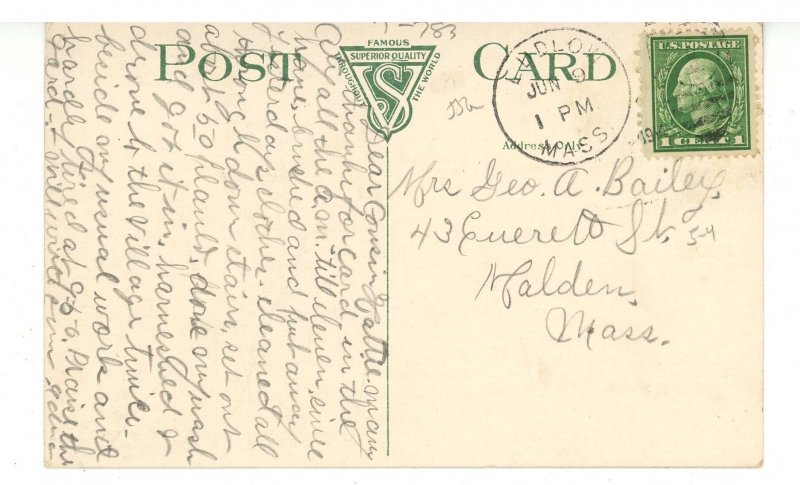 POST CARD
FAMOUS
SUPERIOR QUALITY
THROUGHOUT THE WORLD
S
Address Only
LUDLOW
JUN 9
1 PM
MASS
U.S. POSTAGE
1 CENT 1
Mrs Geo. A. Bailey,
43 Everett St.
Malden,
Mass.
Dear Cousin Hattie many
many thanks for card in the
all the a.m. till eleven, since
have brushed and put away
yesterdays clothes. Cleaned all
through down stairs, set out
about 50 plants, done my wash
and got it in, harnessed &
drove to the village twice-
beside my usual work and
tired at